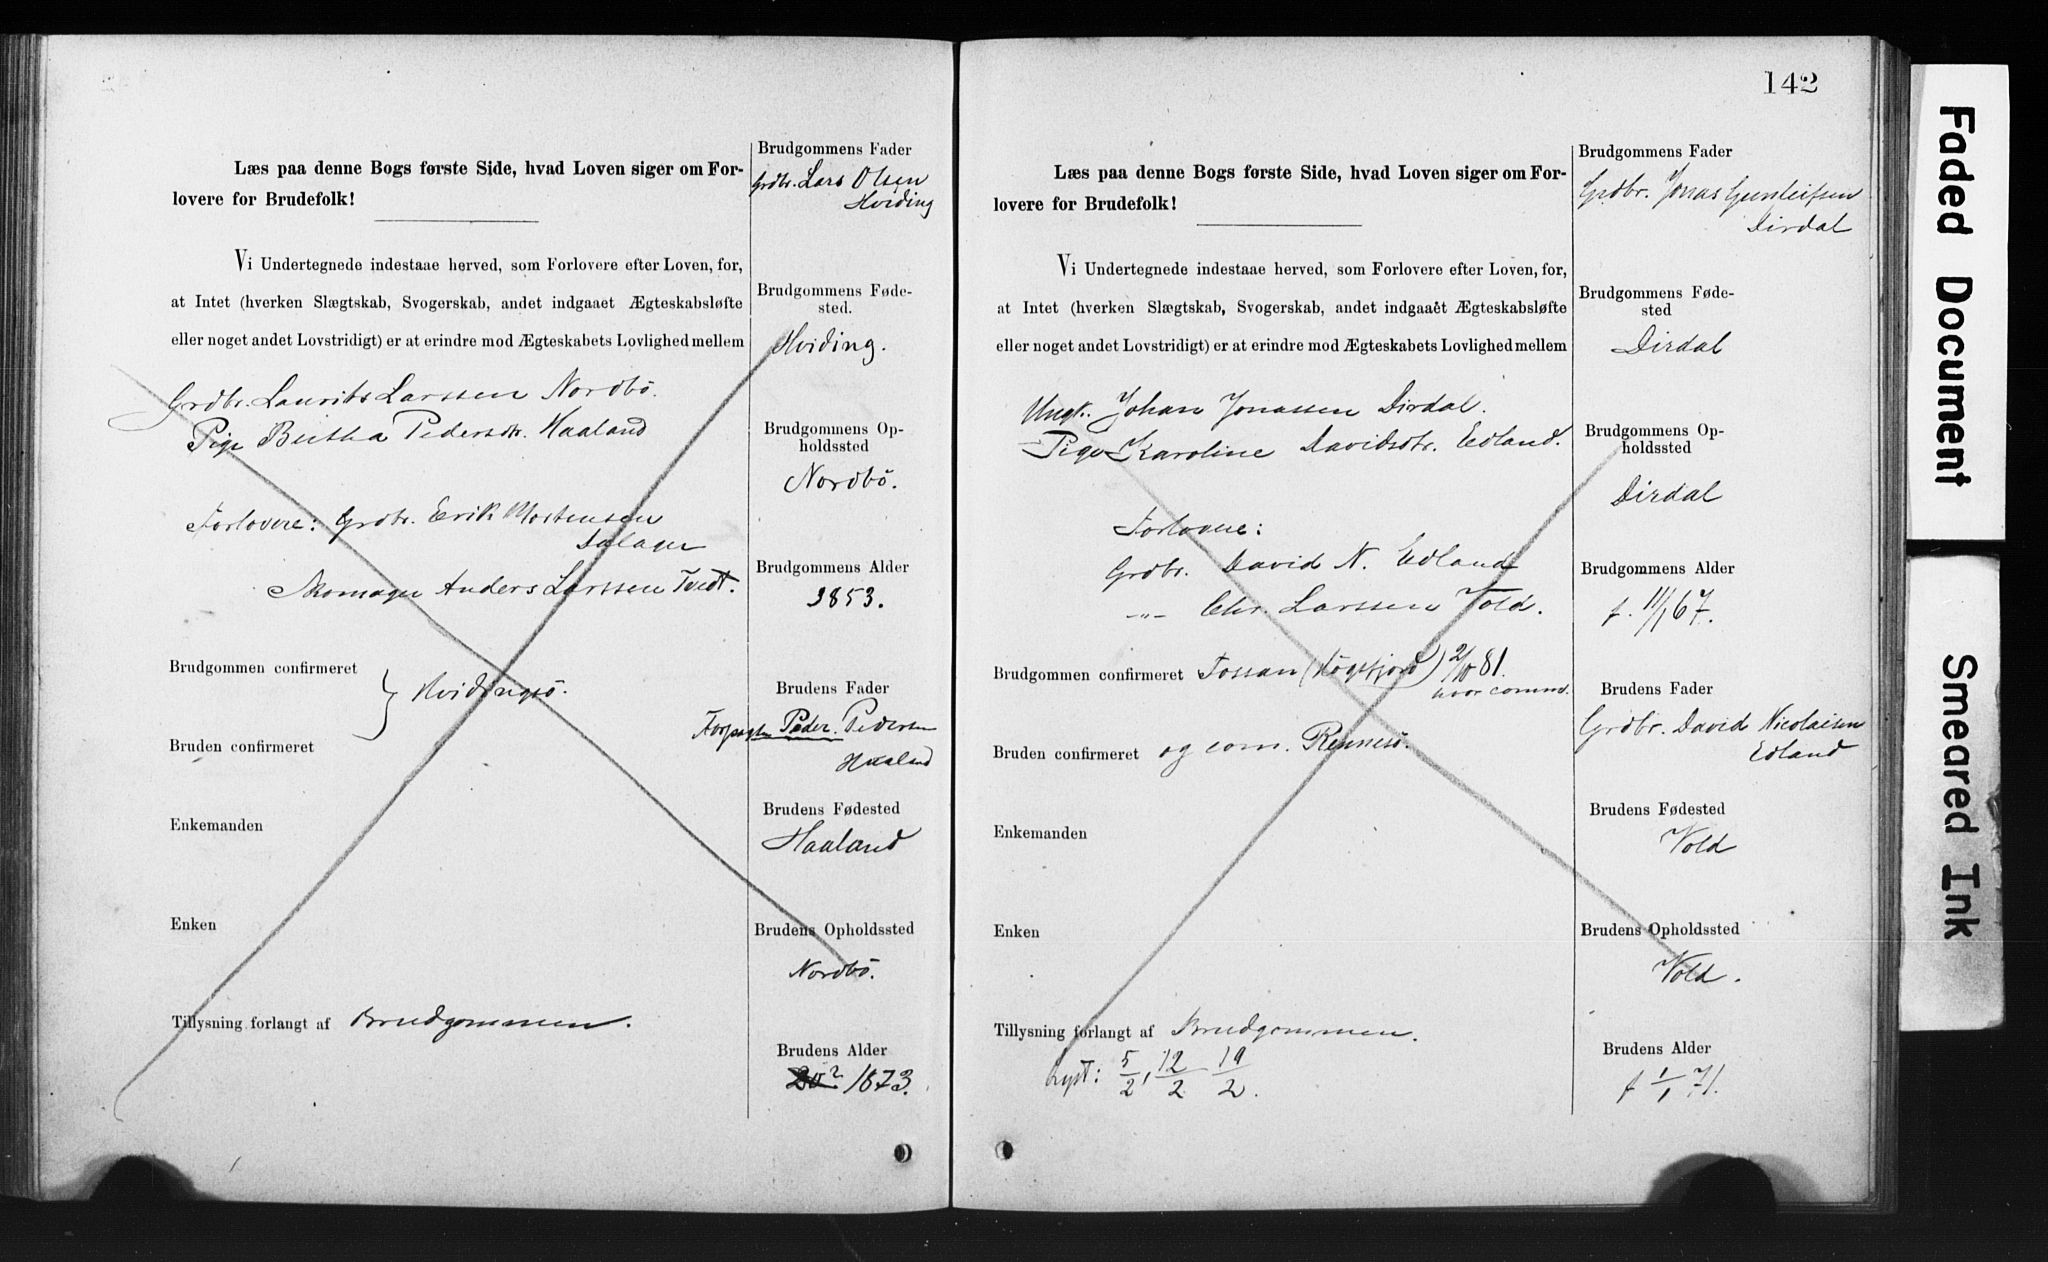 Læs paa denne Bogs første Side, hvad Loven siger om For-
lovere for Brudefolk!
Vi Undertegnede indestaae herved, som Forlovere efter Loven, for,
at Intet (hverken Slægtskab, Svogerskab, andet indgaaet Ægteskabsløfte
eller noget andet Lovstridigt) er at erindre mod Ægteskabets Lovlighed mellem
Grdbr. Laurits Larssen Nordbö.
Pige Pedersdtr. Haaland
Forlovere: Grdbr. Erik Mortensen
Dalager
Skomager Anders Larssen Tvedt.
Brudgommen confirmeret
} Hvidingsö.
Bruden confirmeret
Enkemanden
Enken
Tillysning forlangt af Brudgommen.
Brudgommens Fader
Grdbr. Lars Olsen
Hviding
Brudgommens Føde-
sted.
Hviding.
Brudgommens Op-
holdssted
Nordbö.
Brudgommens Alder
1853.
Brudens Fader
Peder Pedersen
Haaland
Brudens Fødested
Haaland
Brudens Opholdssted
Nordbö.
Brudens Alder
1873.
142
Læs paa denne Bogs første Side, hvad Loven siger om For-
lovere for Brudefolk!
Vi Undertegnede indestaae herved, som Forlovere efter Loven, for,
at Intet (hverken Slægtskab, Svogerskab, andet indgaaet Ægteskabsløfte
eller noget andet Lovstridigt) er at erindre mod Ægteskabets Lovlighed mellem
Ungk. Johan Jonassen Dirdal.
Pige Karoline Davidsdtr. Edland.
Forlovere:
Grdbr. David N. Edland
-"- Chr. Larssen Vold.
Brudgommen confirmeret Fossan (Högsfjord) 2/10 81.
hvor comm.
Bruden confirmeret og com. Rennesö.
Enkemanden
Enken
Tillysning forlangt af Brudgommen.
Lyst: 5/2, 12/2 19/2.
Brudgommens Fader
Grdbr. Jonas Gunleifsen
Dirdal
Brudgommens Føde-
sted
Dirdal
Brudgommens Op-
holdssted
Dirdal
Brudgommens Alder
f. 11/1 67.
Brudens Fader
Grdbr. David Nicolaisen
Edland
Brudens Fødested
Vold
Brudens Opholdssted
Vold.
Brudens Alder
f 1/1 71.
Faded Document
Smeared Ink